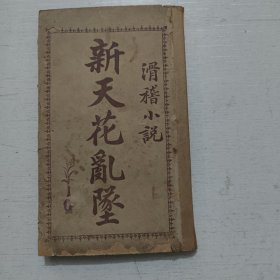 滑稽小説
新天花亂墜